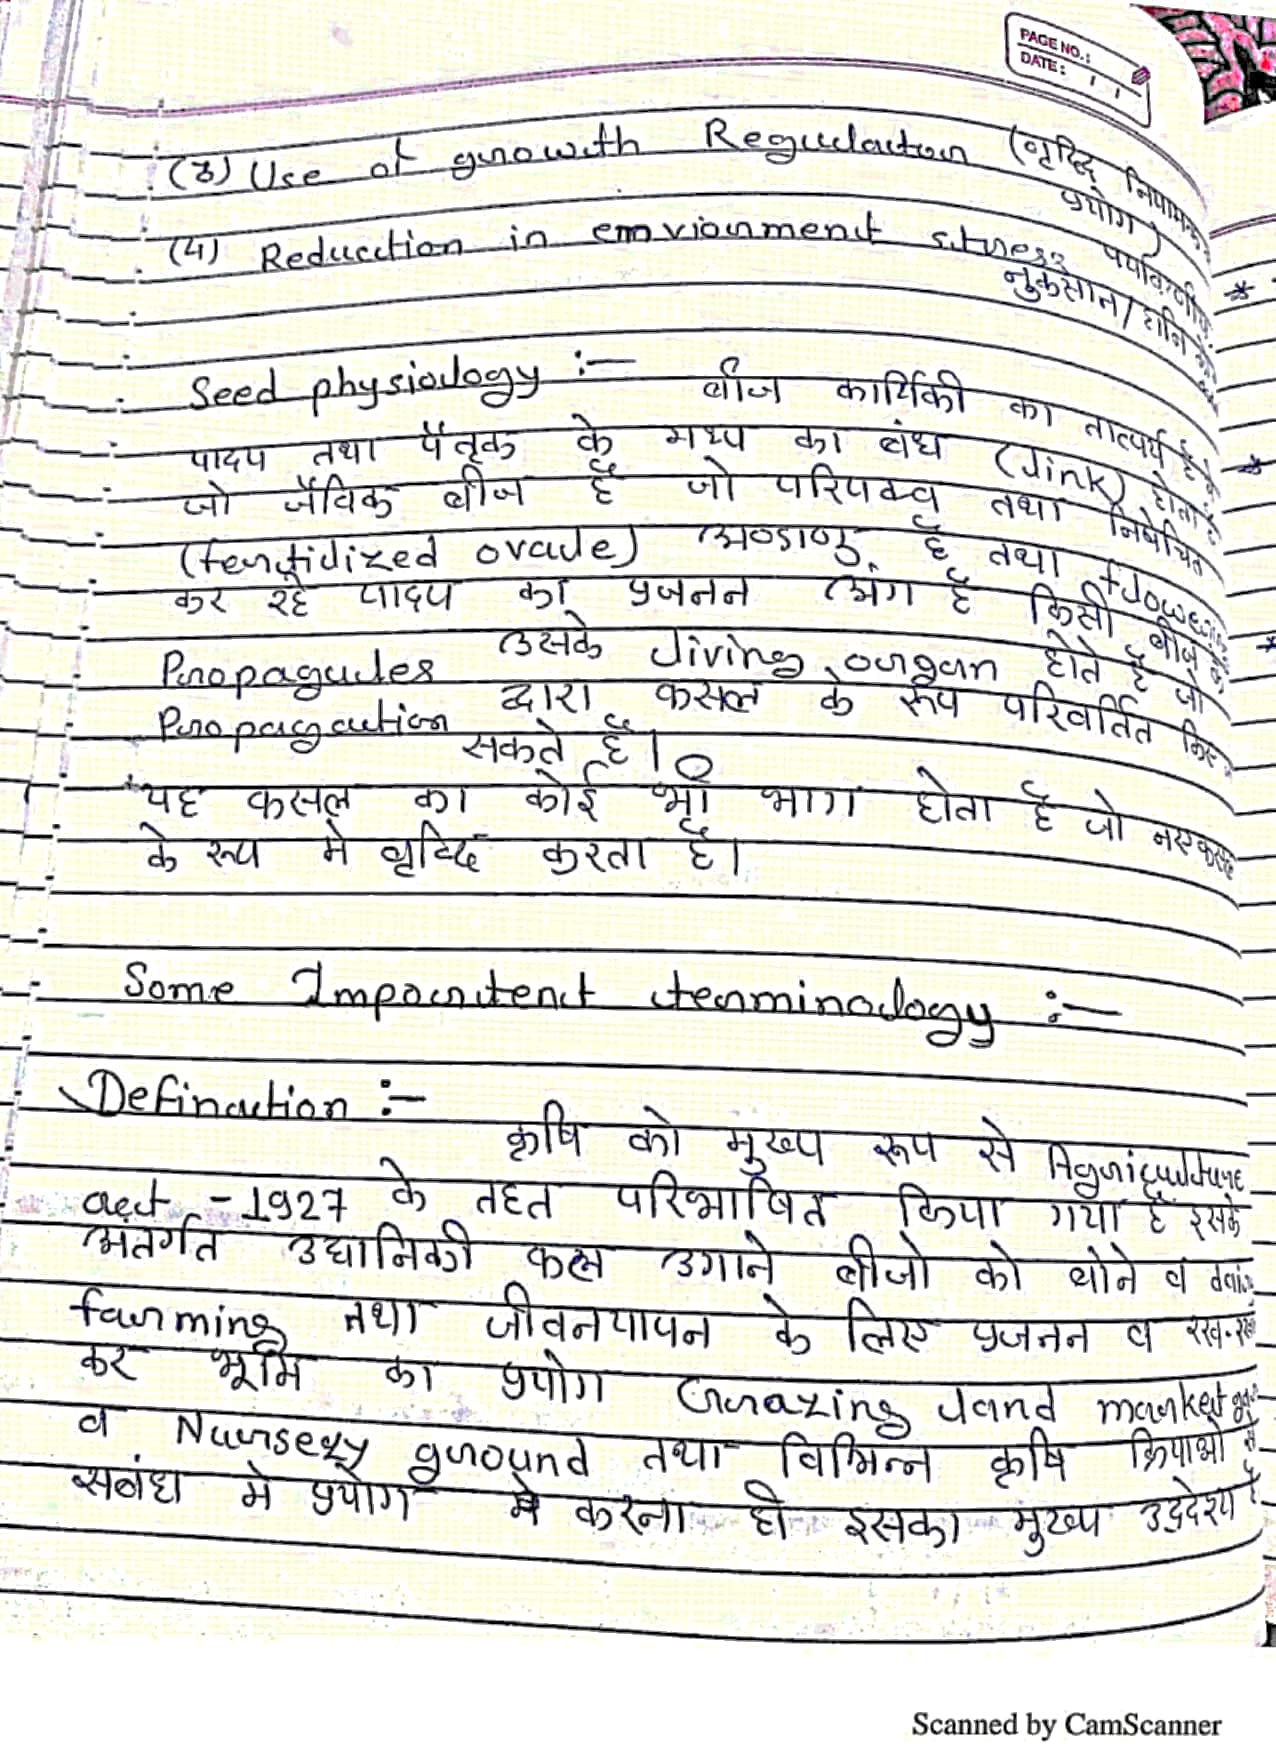 PAGE NO.:
DATE: / /
(3) Use of growth Regulation (वृद्धि नियामक
प्रयोग)
(4) Reduction in enviornment stress पर्यावरणीय
नुकसान/हानि
Seed physiology :— बीज कार्यिकी का तात्पर्य है
पादप तथा पैतृक के मध्य का बंध (link) होता है
जो जैविक बीज है जो परिपक्व तथा निषेचित
(fertilized ovule) अण्डाणु है तथा flowering
कर रहे पादप का प्रजनन अंग है किसी बीज के
Propagules उसके living organ होते है जो
Propagation द्वारा फसल के रूप परिवर्तित किए
सकते है।
यह फसल का कोई भी भाग होता है जो नए फसल
के रूप मे वृद्धि करता है।
Some Important terminology :—
Defination :—
कृषि को मुख्य रूप से Agriculture
act - 1927 के तहत परिभाषित किया गया है इसके
अतर्गत उद्यानिकी फल उगाने बीजो को बोने व
farming तथा जीवनयापन के लिए प्रजनन व रख-रखा
कर भूमि का प्रयोग Grazing land market
व Nursery ground तथा विभिन्न कृषि क्रियाओ
सबंध मे प्रयोग करना ही इसका मुख्य उद्देश्य है
Scanned by CamScanner